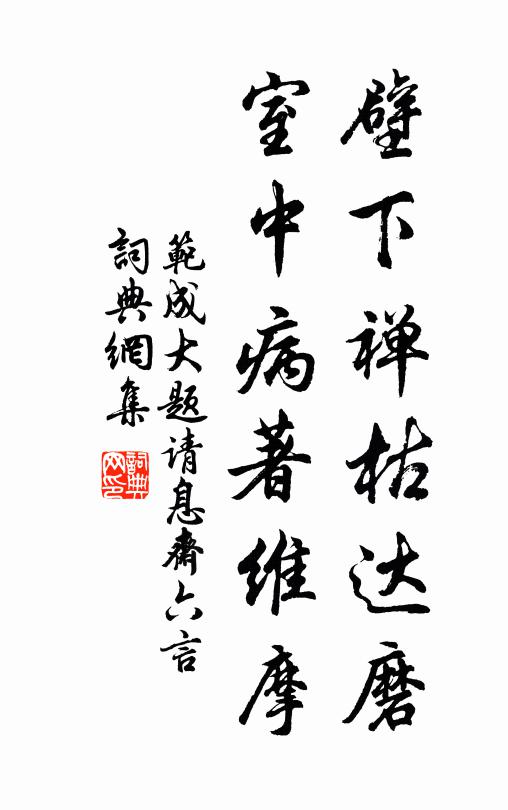 壁下禅枯达磨
室中病著维摩
範成大题请息齋六言
詞典網集
詞典网印